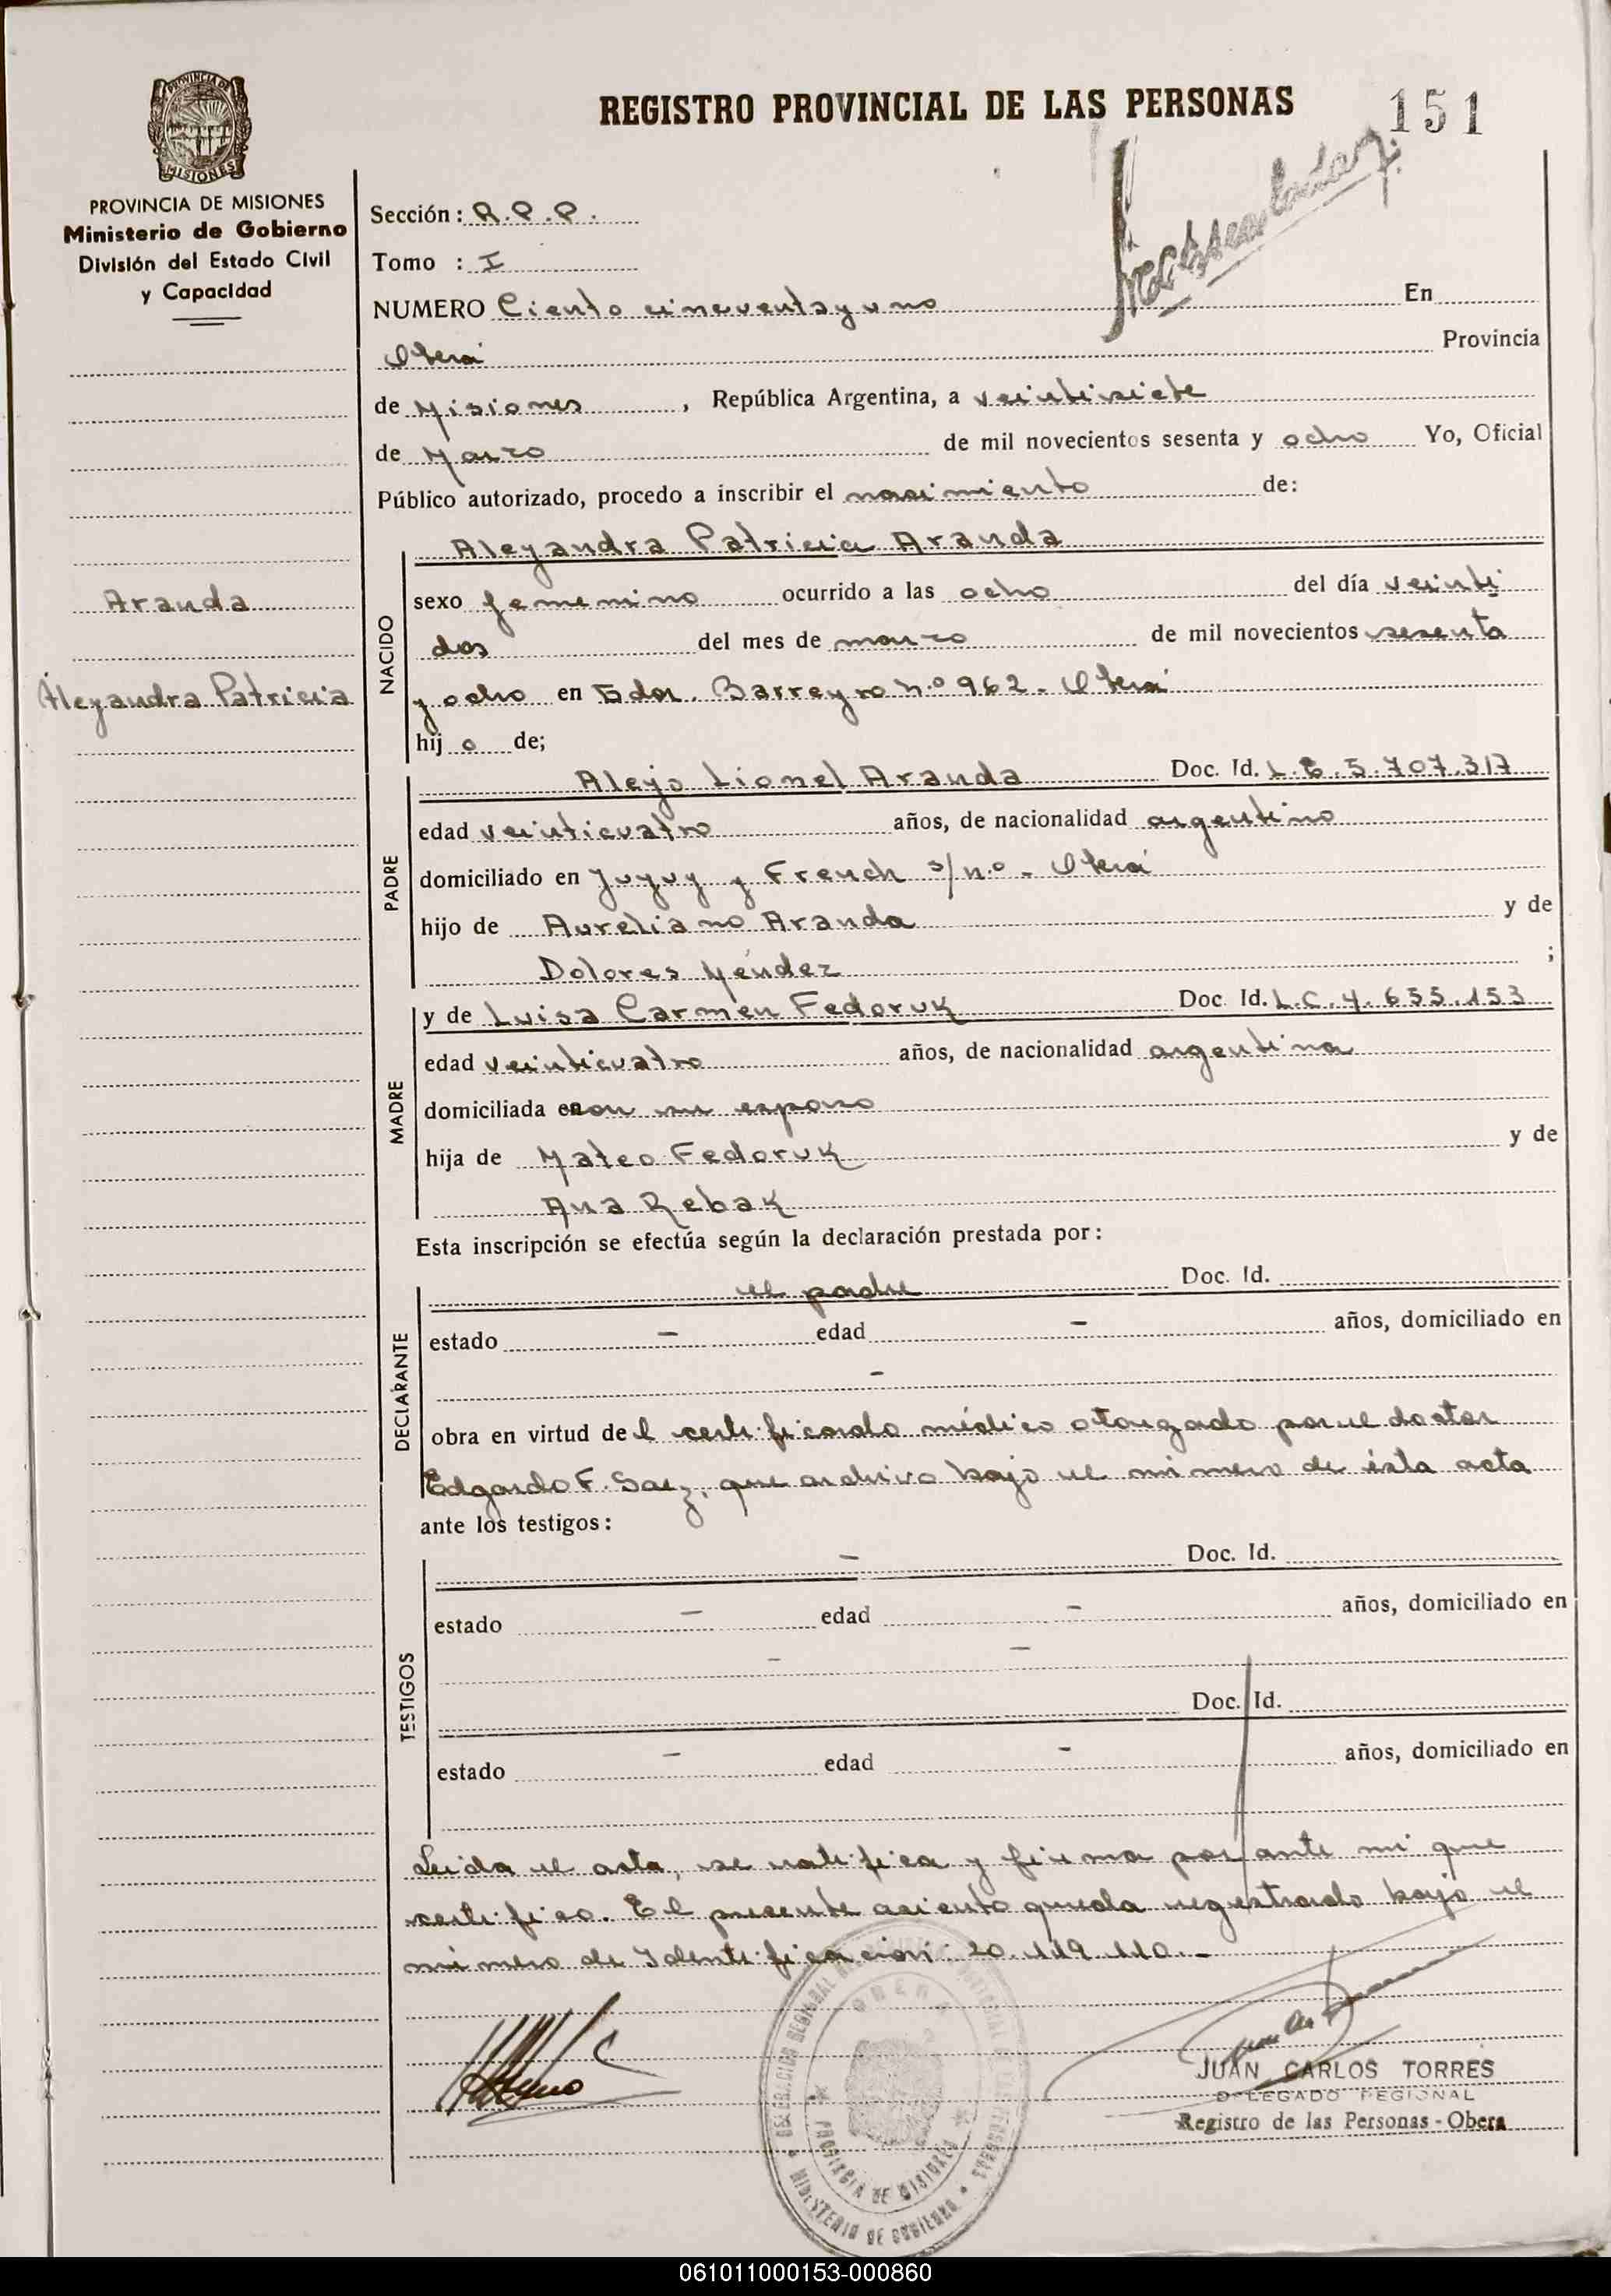 PROVINCIA DE
MISIONES
REGISTRO PROVINCIAL DE LAS PERSONAS
151
PROVINCIA DE MISIONES
Ministerio de Gobierno
División del Estado Civil
y Capacidad
Sección: R.P.P.
Tomo : I
NUMERO Ciento cincuenta y uno En
Oberá Provincia
de Misiones, República Argentina, a veintisiete
de Marzo de mil novecientos sesenta y ocho Yo, Oficial
Público autorizado, procedo a inscribir el nacimiento de:
Alejandra Patricia Aranda
Aranda
Alejandra Patricia
NACIDO
sexo femenino ocurrido a las ocho del día veinti
dos del mes de marzo de mil novecientos sesenta
y ocho en Gdor. Barreyro n.º 962 - Oberá
hij o de;
PADRE
Alejo Lionel Aranda Doc. Id. L.E. 5.707.317
edad veinticuatro años, de nacionalidad argentino
domiciliado en Jujuy y French s/n.º - Oberá
hijo de Aureliano Aranda y de
Dolores Méndez ;
MADRE
y de Luisa Carmen Fedoruk Doc. Id. L.C. 4.655.153
edad veinticuatro años, de nacionalidad argentina
domiciliada en con su esposo
hija de Mateo Fedoruk y de
Ana Rebak
Esta inscripción se efectúa según la declaración prestada por:
DECLARANTE
el padre Doc. Id.
estado — edad — años, domiciliado en
—
obra en virtud de l certificado médico otorgado por el doctor
Edgardo F. Saez, que archivo bajo el número de ésta acta
ante los testigos:
TESTIGOS
— Doc. Id.
estado — edad — años, domiciliado en
— —
Doc. Id.
estado — edad — años, domiciliado en
Leída el acta, se ratifica y firma por ante mi que
certifico. El presente asiento queda registrado bajo el
número de Identificación: 20.119.110.-
JUAN CARLOS TORRES
DELEGADO REGIONAL
Registro de las Personas - Oberá
OBERA
PROVINCIA DE MISIONES
MINISTERIO DE GOBIERNO
061011000153-000860